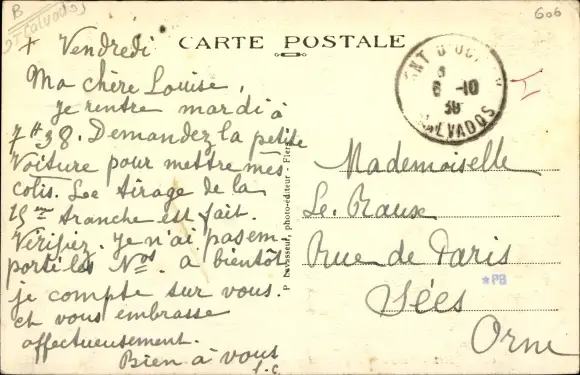 B
Calvados
606
+ Vendredi
CARTE POSTALE
Ma chère Louise,
je rentre mardi à
7H38. Demandez la petite
Voiture pour mettre mes
colis. Le tirage de la
15ème tranche est fait.
Vérifiez. Je n'ai pas em-
porté les Nos. a bientôt
je compte sur vous.
et vous embrasse
affectueusement.
Bien à vous
L.C
P. Levasseur, photo-éditeur - Flers
6 -10
38
CALVADOS
Mademoiselle
Le Raux
Rue de Paris
*PB
Sées
Orne